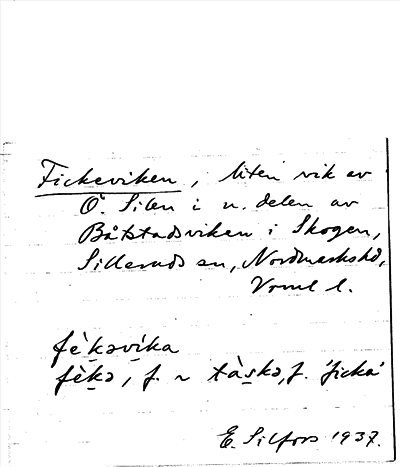 Fickeviken, liten vik av
Ö. Silen i n. delen av
Båtstadsviken i Skogen,
Silleruds sn, Nordmarks hd,
Värml l.
fèkəvika
fèkə, f. ~ tàskə, f. 'ficka'
E. Silfors 1937.